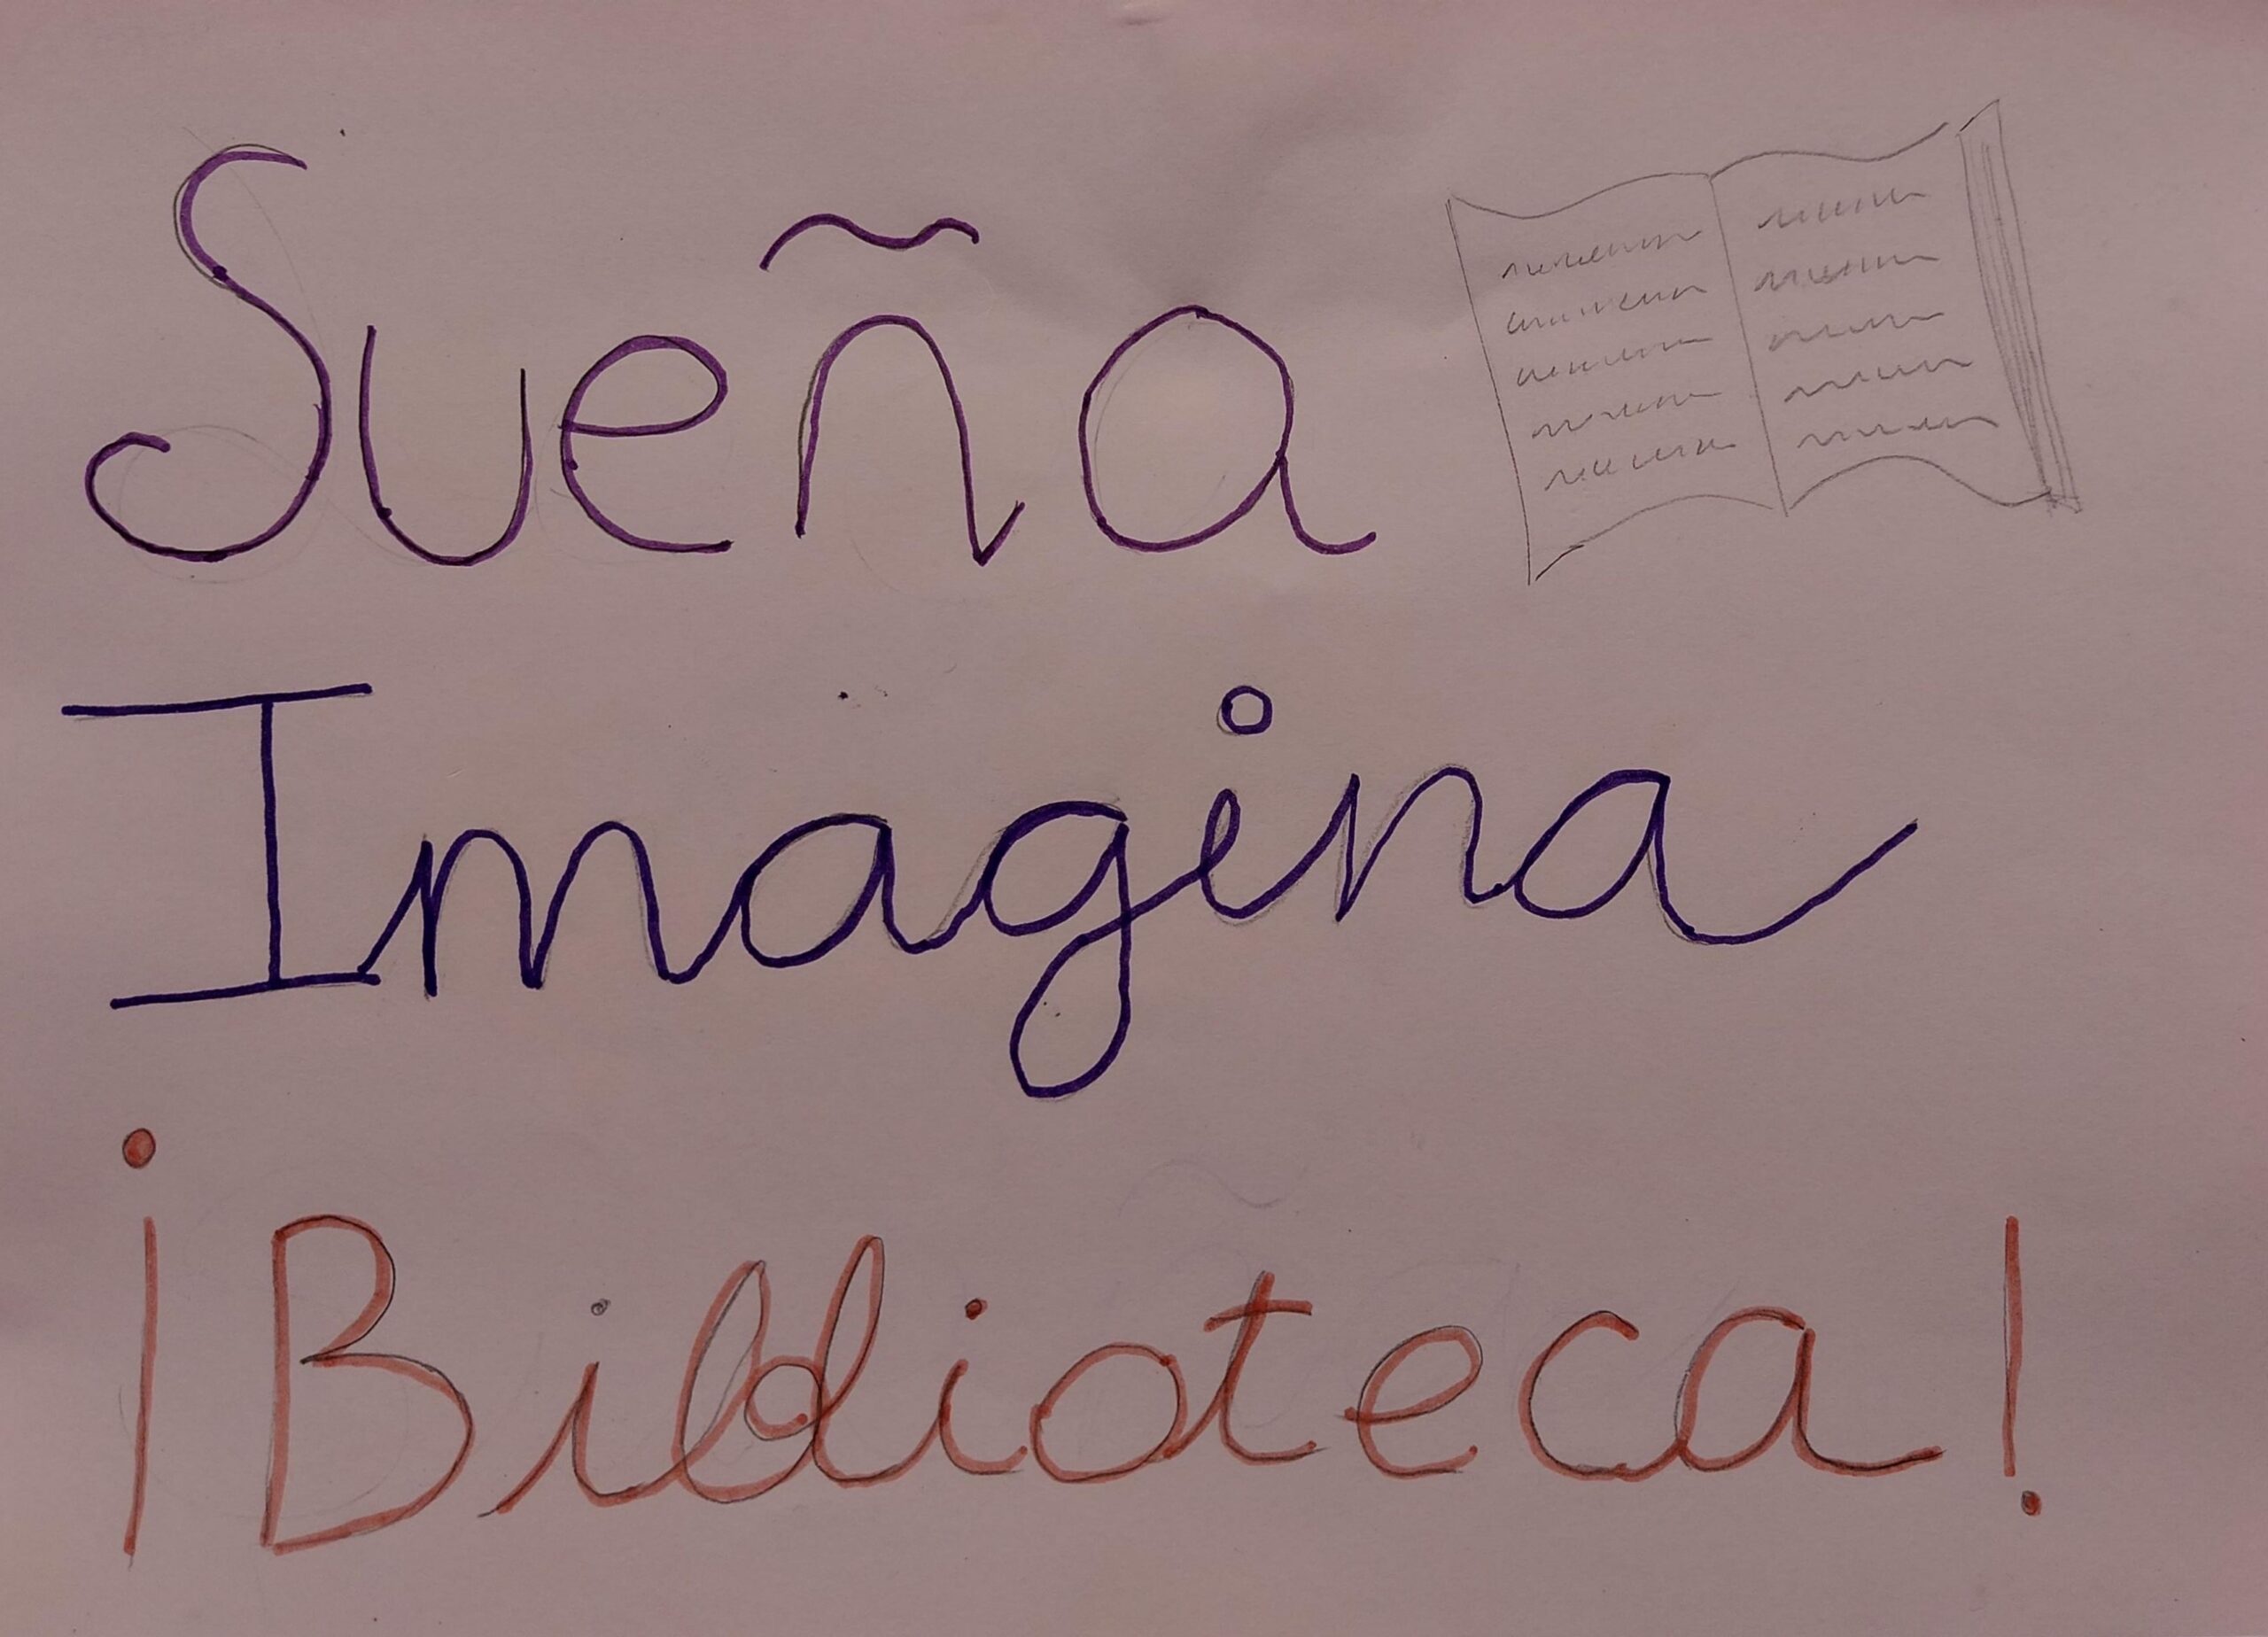 Sueña
Imagina
¡Biblioteca!